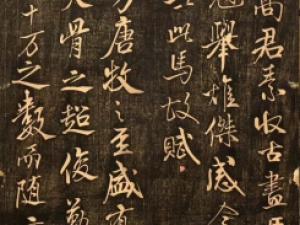 高君素收古畫
冠舉雄傑感今
此馬故賦
方唐牧之至盛有
天骨之超俊勒
十万之數而随